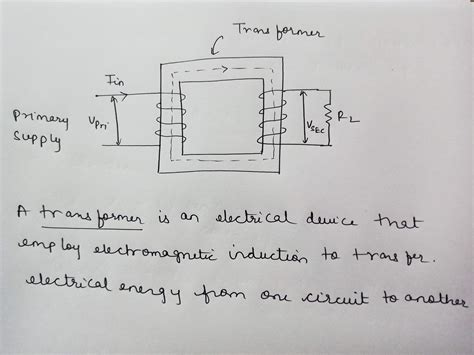 Transformer
Iin
Primary
Supply
VPri
VSEC
RL
A transformer is an electrical device that
employ electromagnetic induction to transfer.
electrical energy from one circuit to another